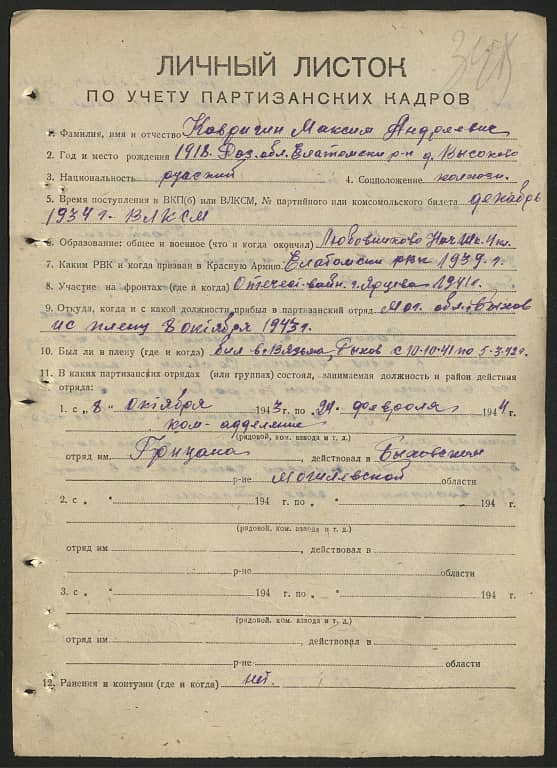 ЛИЧНЫЙ ЛИСТОК
ПО УЧЕТУ ПАРТИЗАНСКИХ КАДРОВ
1. Фамилия, имя и отчество Кавригин Максим Андреевич
2. Год и место рождения 1918. обл. Елатомский р-н д. Высоково
3. Национальность русский 4. Соцположение колхозн.
5. Время поступления в ВКП(б) или ВЛКСМ, № партийного или комсомольского билета декабрь
1934 г. ВЛКСМ
6. Образование: общее и военное (что и когда окончил) Любовниково Нач. шк. 4
7. Каким РВК и когда призван в Красную Армию Елатомски рвк 1939 г.
8. Участие на фронтах (где и когда) Отечест. войн. г. Ярцева 1941 г.
9. Откуда, когда и с какой должности прибыл в партизанский отряд Мог. обл. Быхов
ис плену 8 октября 1943 г.
10. Был ли в плену (где и когда) был в. Вязьма, Быхов с 10-10-41 по 5-3-42 г.
11. В каких партизанских отрядах (или группах) состоял, занимаемая должность и район действия
отряда:
1. с „ 8 „ октября 1943 г. по „ 24 „ февроля 1944 г.
ком-адделение
(рядовой, ком. взвода и т. д.)
отряд им Грицана, действовал в Быховском
р-не Могилевской области
2. с „ „ 194 г. по „ „ 194 г.
(рядовой, ком. взвода и т. д.)
отряд им , действовал в
р-не области
3. с „ „ 194 г. по „ „ 194 г.
(рядовой, ком. взвода и т. д.)
отряд им , действовал в
р-не области
12. Ранения и контузии (где и когда) нет.